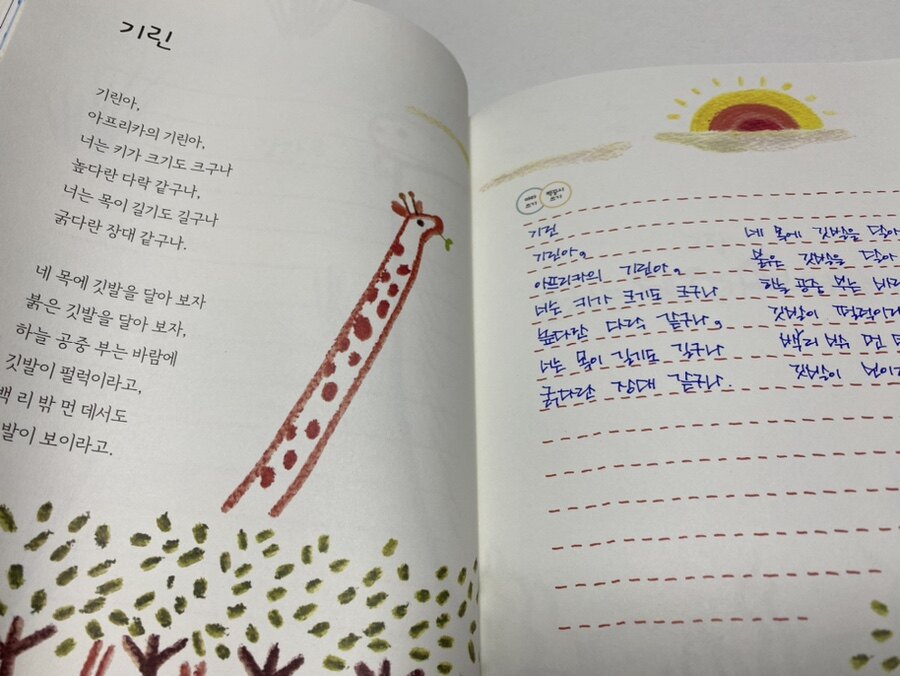 기린
기린아,
아프리카의 기린아,
너는 키가 크기도 크구나
높다란 다락 같구나,
너는 목이 길기도 길구나
굵다란 장대 같구나.
네 목에 깃발을 달아 보자
붉은 깃발을 달아 보자,
하늘 공중 부는 바람에
깃발이 펄럭이라고,
백 리 밖 먼 데서도
발이 보이라고.
따라 쓰기
기린
기린아,
아프리카의 기린아,
너는 키가 크기도 크구나
높다란 다락 같구나,
너는 목이 길기도 길구나
굵다란 장대 같구나.
네 목에 깃발을 달아
붉은 깃발을 달아
하늘 공중 부는 바
깃발이 펄럭이라
백리 밖 먼
깃발이 보이